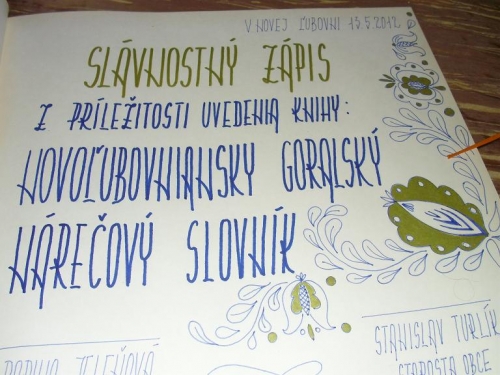 V NOVEJ ĽUBOVNI 13.5.2012
SLÁVNOSTNÝ ZÁPIS
Z PRÍLEŽITOSTI UVEDENIA KNIHY:
NOVOĽUBOVNIANSKY GORALSKÝ
NÁREČOVÝ SLOVNÍK
STANISLAV TURLÍK
STAROSTA OBCE